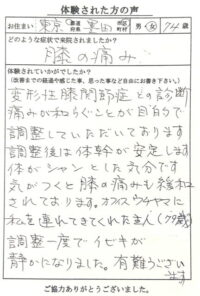 体験された方の声
お住まい 東京 都道府県 墨田 市区町村 男・女 74歳
どのような症状で来院されましたか?
膝の痛み
体験されていかがでしたか?
(改善までの経過や感じた事、思った事など自由にお書き下さい。)
変形性膝関節症との診断
痛みが和らぐことが目的で
調整していただいております
調整後は体幹が安定します
体がシャンとした気分です
気がつくと膝の痛みも緩和
されております。オフィスウチヤマに
私を連れてきてくれた主人(79歳)
調整一度でイビキが
静かになりました。有難うござい
ます
ご協力ありがとうございました。